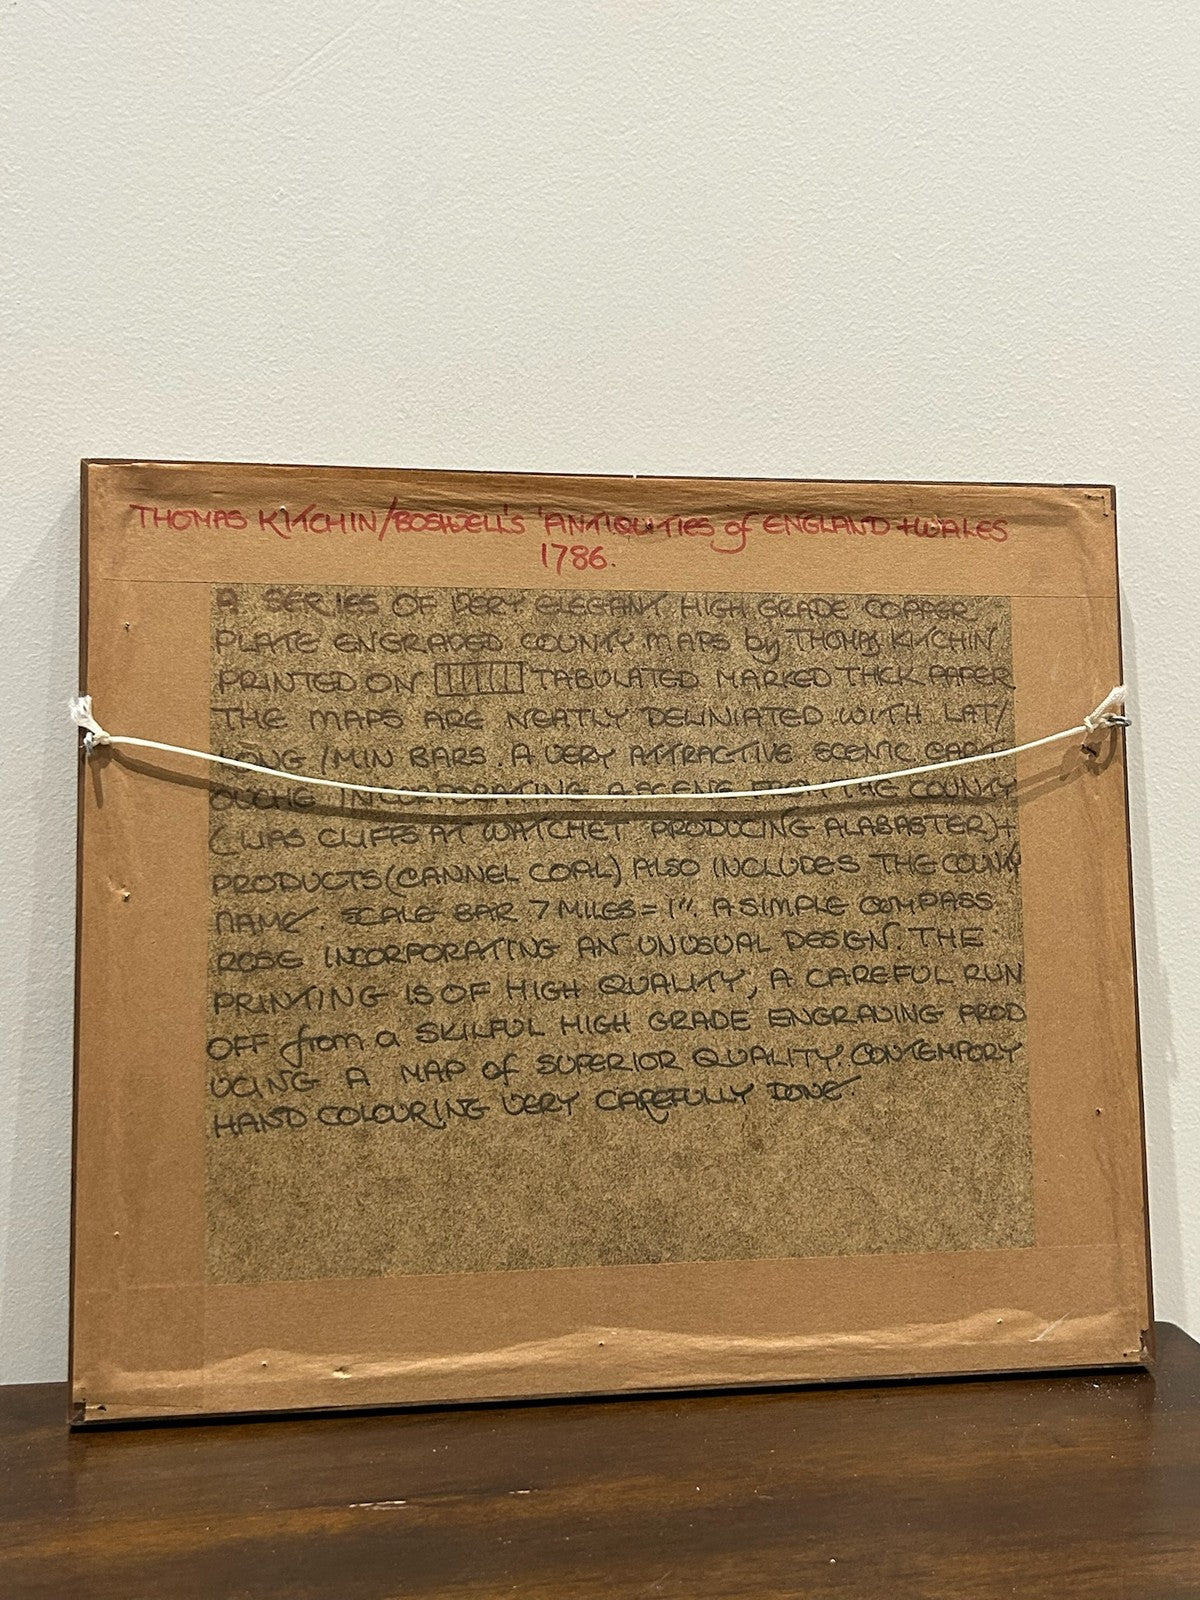 THOMAS KITCHIN/BOSWELL'S 'ANTIQUITIES of ENGLAND + WALES
1786.
A SERIES OF VERY ELEGANT HIGH GRADE COPPER
PLATE ENGRAVED COUNTY MAPS by THOMAS KITCHIN
PRINTED ON TABULATED MARKED THICK PAPER
THE MAPS ARE NEATLY DELINIATED WITH LAT/
LONG/MIN BARS. A VERY ATTRACTIVE SCENIC CART
OUCHE INCORPORATING A SCENE FROM THE COUNTY
(LIAS CLIFFS AT WATCHET PRODUCING ALABASTER)+
PRODUCTS (CANNEL COAL) ALSO INCLUDES THE COUNTY
NAME. SCALE BAR 7 MILES = 1". A SIMPLE COMPASS
ROSE INCORPORATING AN UNUSUAL DESIGN. THE
PRINTING IS OF HIGH QUALITY, A CAREFUL RUN
OFF from a SKILFUL HIGH GRADE ENGRAVING PROD
UCING A MAP of SUPERIOR QUALITY. CONTEMPORY
HAND COLOURING VERY CAREFULLY DONE.